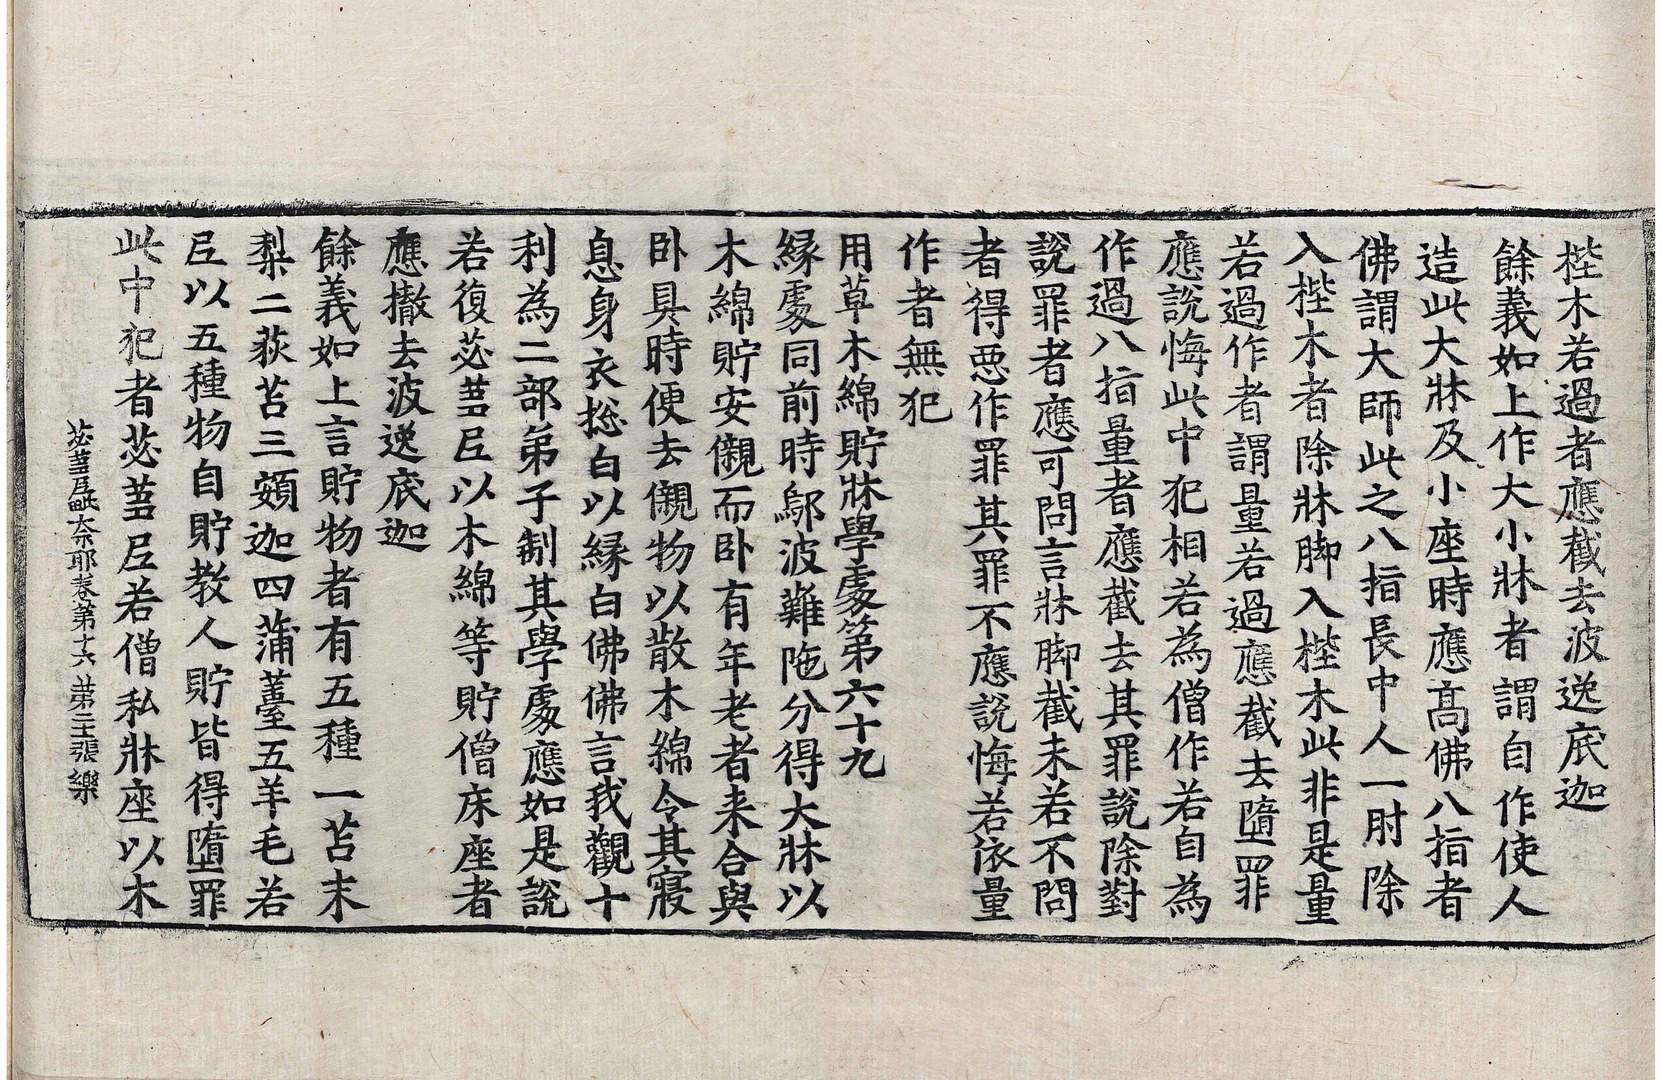 梐木若過者應截去波逸底迦
餘義如上作大小牀者謂自作使人
造此大牀及小座時應高佛八指者
佛謂大師此之八指長中人一肘除
入梐木者除牀脚入梐木此非是量
若過作者謂量若過應截去墮罪
應說悔此中犯相若為僧作若自為
作過八指量者應截去其罪說除對
說罪者應可問言牀脚截未若不問
者得惡作罪其罪不應說悔若依量
作者無犯
用草木綿貯牀學處第六十九
緣處同前時鄔波難陁分得大牀以
木綿貯安儭而卧有年老者来合與
卧具時便去儭物以散木綿令其寢
息身衣捴白以緣白佛佛言我觀十
利為二部弟子制其學處應如是說
若復苾芻尼以木綿等貯僧床座者
應撤去波逸底迦
餘義如上言貯物者有五種一苫末
梨二荻苫三頞迦四蒲臺五羊毛若
尼以五種物自貯教人貯皆得墮罪
此中犯者苾芻尼若僧私牀座以木
苾芻尼毗奈耶卷第十六 第二十張 樂